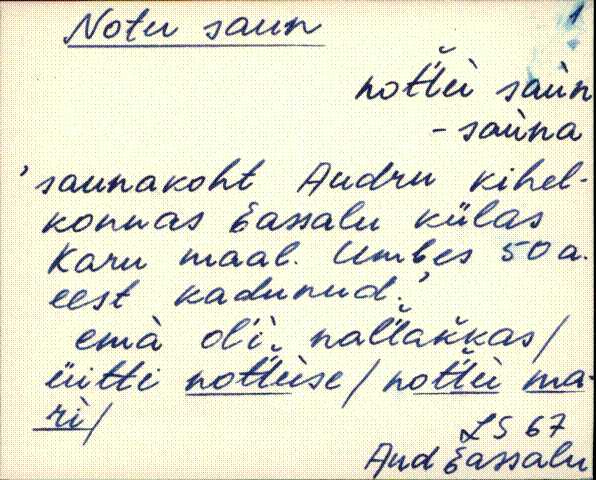 Notu saun
1
notťui saùn
- saùna
'saunakoht Audru kihel-
konnas Eassalu külas
Karu maal. Umbes 50 a.
eest kadunud.'
emà ol'ì nalľakkas/
üitti notťuise/ notťui ma-
ri/
LS 67
Aud Eassalu